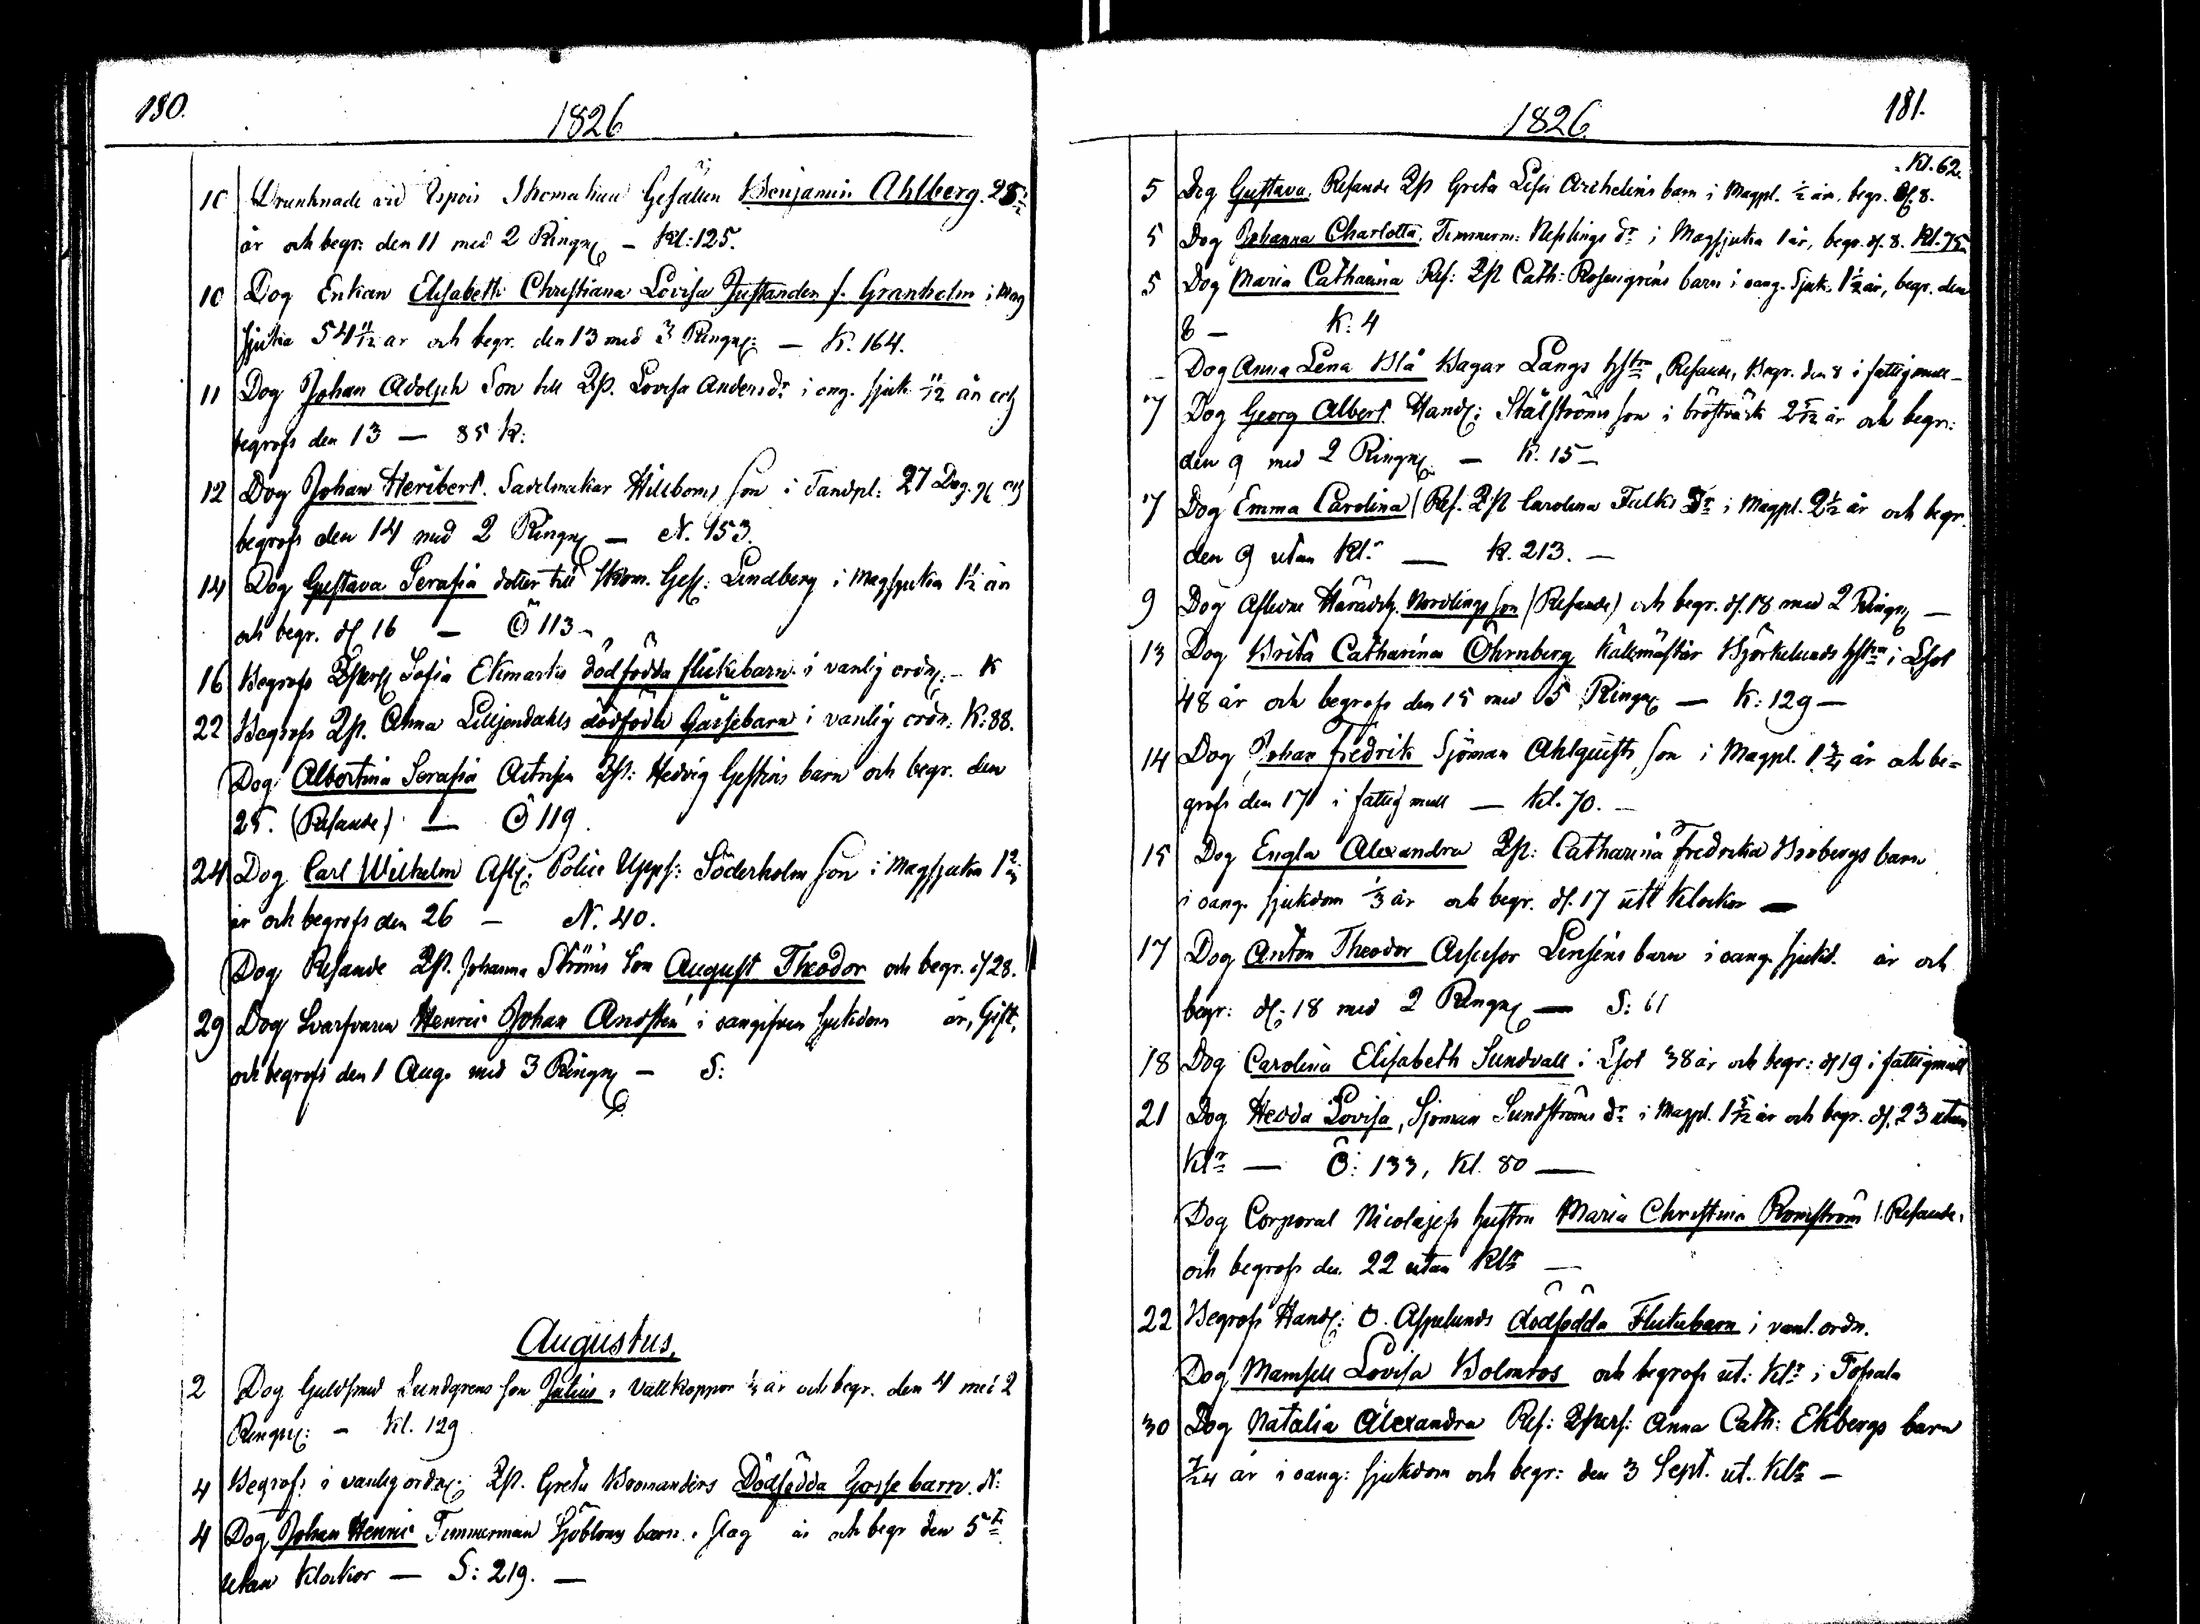 180.
1826
10 Drunknade vid Espois Skomakare Gesällen Benjamin Ahlberg. 25
år och begr: den 11 med 2 Ringn: — Kl: 125.
10 Dog Enkan Elisabeth Christiana Lovisa Justanden f. Granholm i Mag
sjuka 54 11/12 år och begr. den 13 med 3 Ringn: — K. 164.
11 Dog Johan Adolph Son till Qp. Lovisa Andersdr i ong. sjuk. 11/12 år och
begrofs den 13 — 85 K:
12 Dog Johan Heribert. Sadelmakar Hillboms son i Tandpl: 27 Dag. och
begrofs den 14 med 2 Ringn — N. 153.
14 Dog Gustava Serafia dotter till Skom. Ges: Lindberg i Magsjuka 1 1/2 år
och begr. d. 16 — Ö 113 -
16 Begrofs Sofia Ekmarks dödfödda flickebarn i vanlig ordn: - K
22 Begrofs Qp. Anna Lilljendahls dödfödda Gossebarn i vanlig ordn: K: 88.
Dog Albertina Serafia Actrisen Qp: Hedvig Gestins barn och begr. den
25. (Resande) — Ö 119.
24 Dog Carl Wilhelm Afl: Police Upps: Söderholm son i Magsjuka 1
år och begrofs den 26 — N. 40.
Dog Resande Qp. Johanna Ströms Son August Theodor och begr. d 28.
29 Dog Svarfvaren Henric Johan Andstén i oangifven sjukdom år, Gift,
och begrofs den 1 Aug. med 3 Ringn — S:
Augustus.
2 Dog Guldsmed Lundgrens son Julius i Vattkoppor år och begr. den 4 med 2
Ringn: — Kl. 129
4 Begrofs i vanlig ordn: Qp. Greta Bomanders Dödfödda Gosse barn. N:
4 Dog Johan Henric Timmerman Sjöbloms barn i slag år och begr den 5te
utan Klockor — S: 219. —
1826
181.
Kl. 62.
5 Dog Gustava. Resande Qp Greta Lisa Archelins barn i Magpl. 1/2 år, begr. d. 8.
5 Dog Johanna Charlotta. Timmerm: Neslings dr i Magsjuka 1 år, begr. d. 8. Kl. 75
5 Dog Maria Catharina Res: Qp Cath: Rosengrens barn i oang. sjuk. 1 1/2 år, begr. den
8 — K: 4
Dog Anna Lena Blå Bagar Långs hstru, Resande, Begr. den 8 i fattigmull -
7 Dog Georg Albert Handl: Stålströms son i bröstvärk 2 5/12 år och begr:
den 9 med 2 Ringn — K. 15 —
7 Dog Emma Carolina (Res. Qp Carolina Falks dr i Magpl. 2 1/2 år och begr.
den 9 utan Kl: — K. 213. —
9 Dog Aflidne Häradsh. Nordlings son (Resande) och begr. d. 18 med 2 Ringn —
13 Dog Brita Catharina Öhrnberg Källmästar Björkelunds hstru i Lsot
48 år och begrofs den 15 med 5 Ringn — K: 129 —
14 Dog Johan Fredrik Sjöman Ahlquists son i Magpl. 1 3/4 år och be=
grofs den 17 i fattigmull — Kl. 70. —
15 Dog Engla Alexandra Qp: Catharina Fredrika Brobergs barn
i oang. sjukdom 1/3 år och begr. d. 17 utt Klockor —
17 Dog Anton Theodor Assessor Linséns barn i oang. sjukd. år och
begr: d. 18 med 2 Ringn — S: 61
18 Dog Carolina Elisabeth Sundvall i Lsot 38 år och begr: d 19 i fattigmull
21 Dog Hedda Lovisa, Sjöman Sundströms dr i Magpl. 1 5/12 år och begr. d. 23 utan
Klr — Ö: 133, Kl. 80 —
Dog Corporal Nicolajefs hustru Maria Christina Romström (Resande)
och begrofs den 22 utan Klr —
22 Begrofs Handl: O. Aspelunds dödfödda Flickebarn i vanl. ordn.
Dog Mamsell Lovisa Bolmros och begrofs ut: Klr i Tofsala
30 Dog Natalia Alexandra Res: Anna Cath: Ekbergs barn
7/24 år i oang: sjukdom och begr: den 3 Sept. ut. Klr —